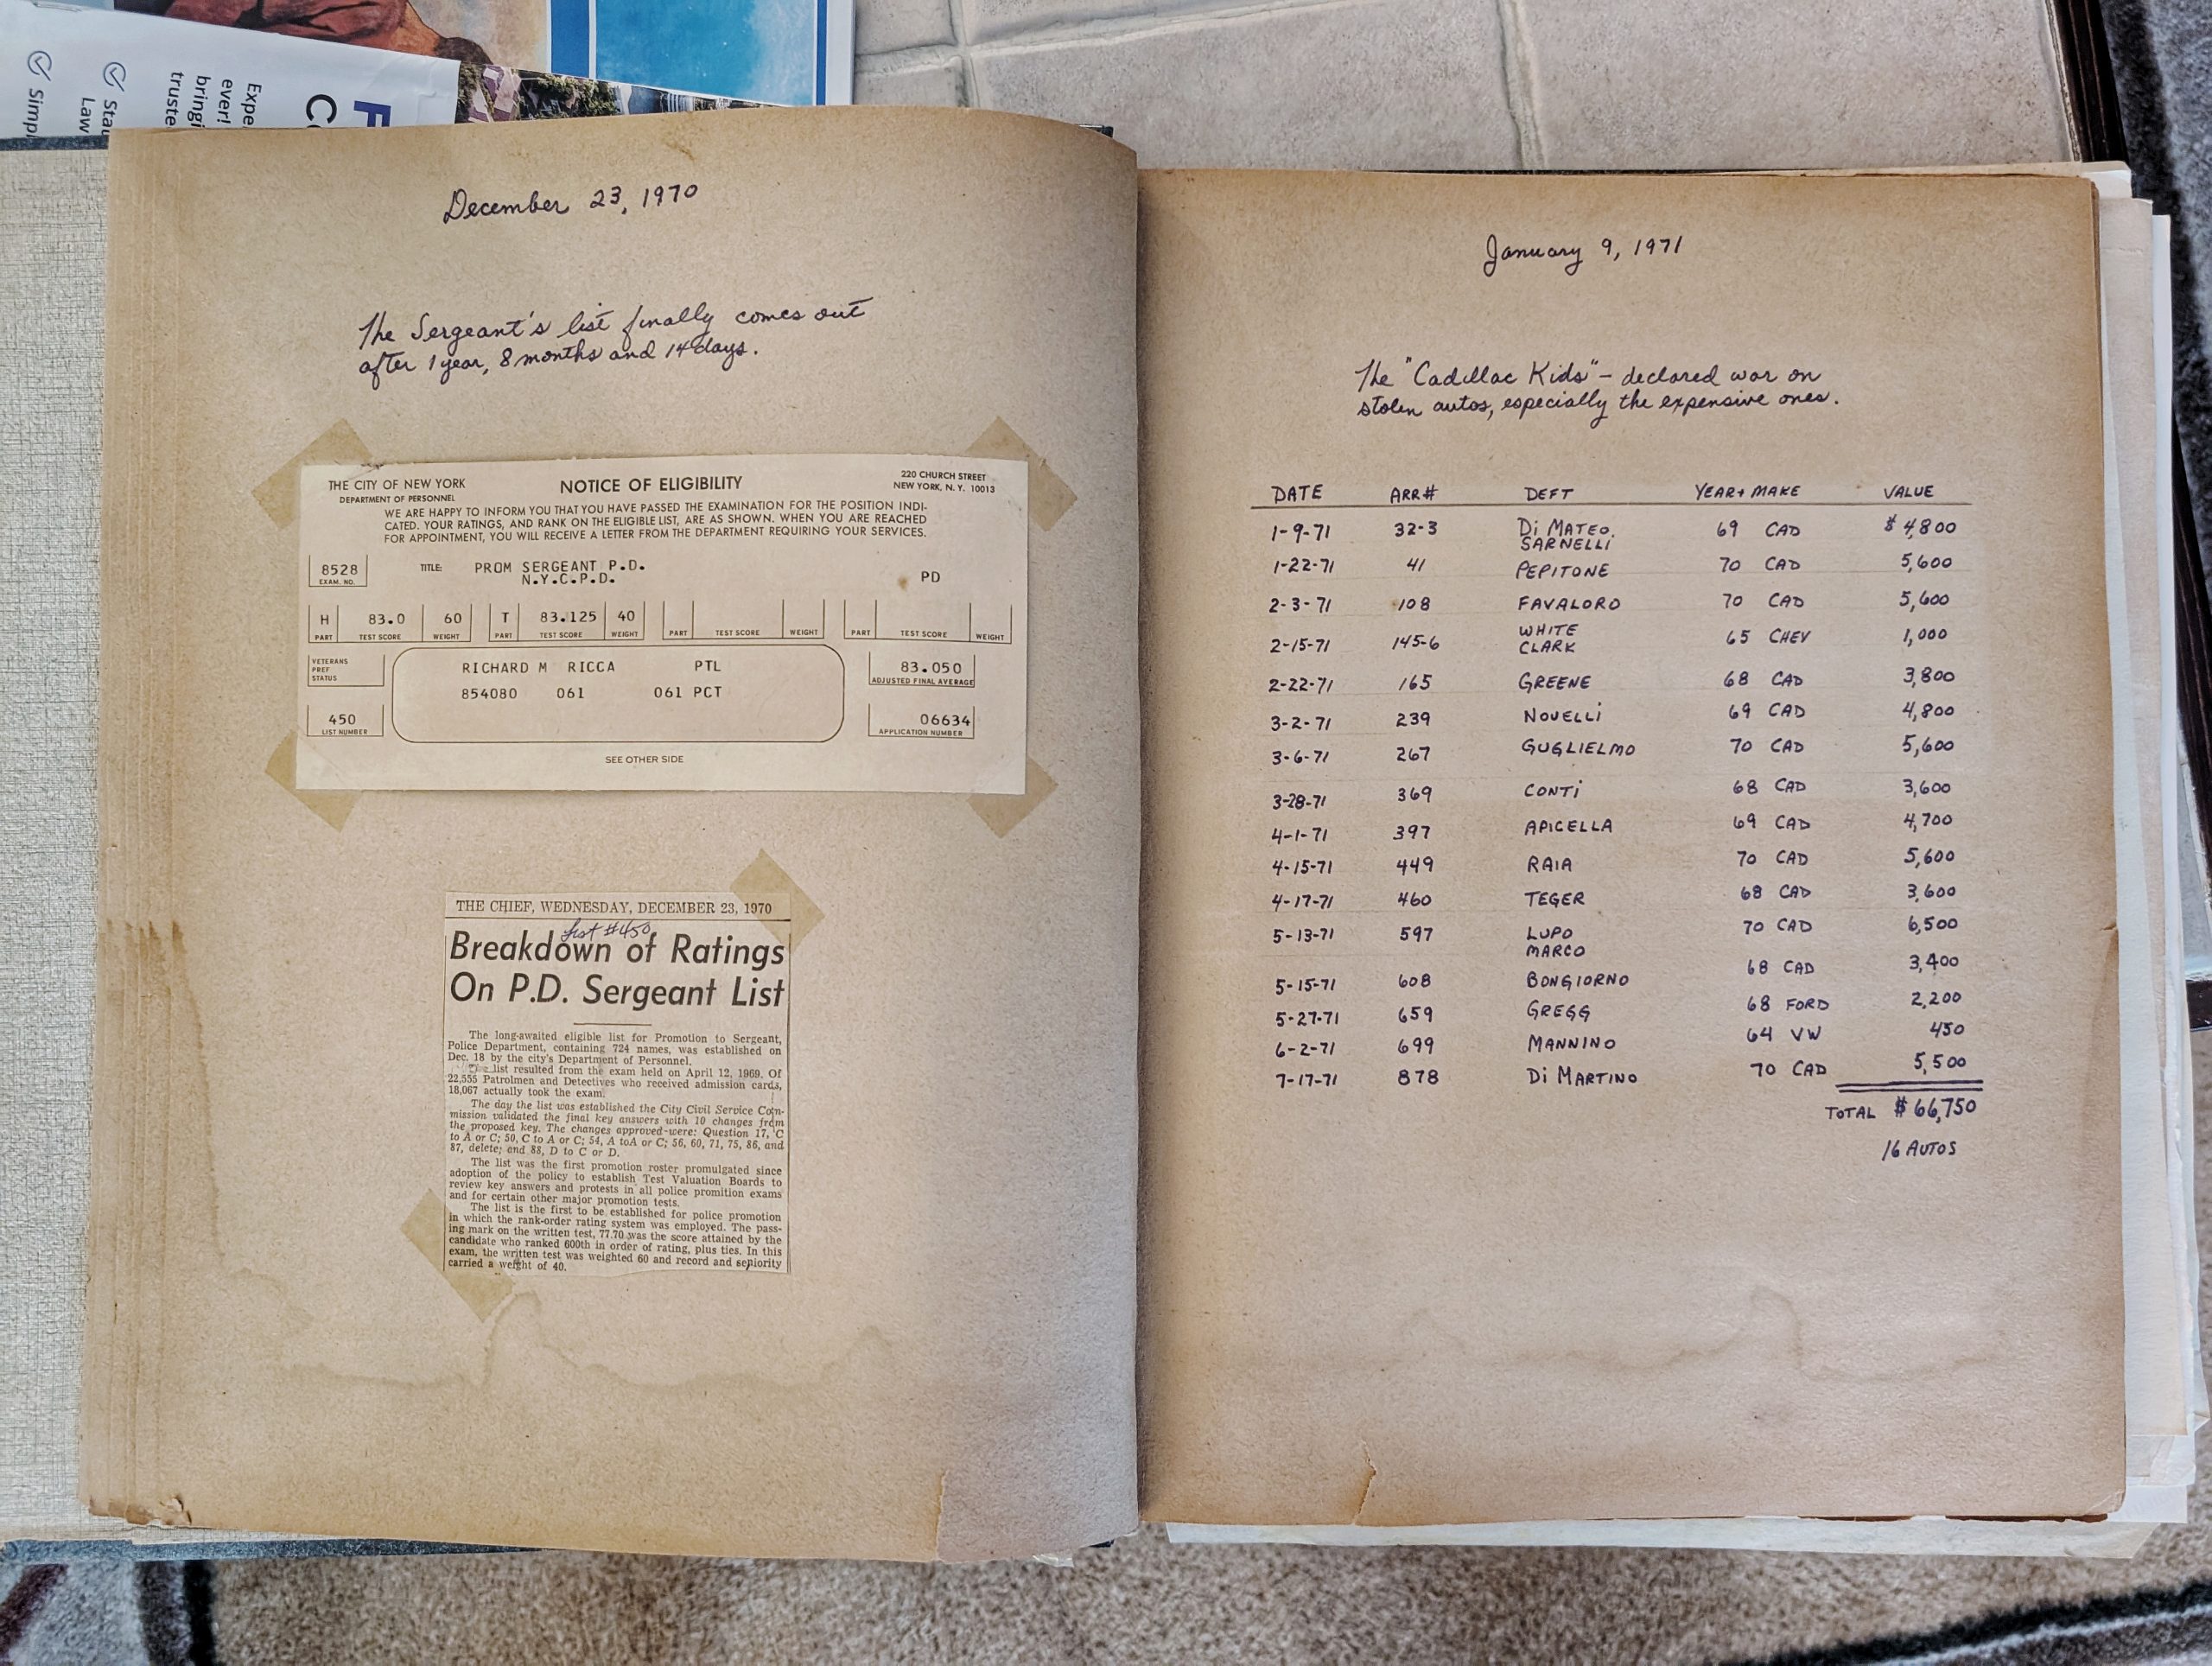 F
C
Expe
ever!
bringi
truste
Sta
Law
Simpl
December 23, 1970
The Sergeant's list finally comes out
after 1 year, 8 months and 14 days.
THE CITY OF NEW YORK
DEPARTMENT OF PERSONNEL
NOTICE OF ELIGIBILITY
220 CHURCH STREET
NEW YORK, N. Y. 10013
WE ARE HAPPY TO INFORM YOU THAT YOU HAVE PASSED THE EXAMINATION FOR THE POSITION INDI-
CATED. YOUR RATINGS, AND RANK ON THE ELIGIBLE LIST, ARE AS SHOWN. WHEN YOU ARE REACHED
FOR APPOINTMENT, YOU WILL RECEIVE A LETTER FROM THE DEPARTMENT REQUIRING YOUR SERVICES.
8528
EXAM. NO.
TITLE: PROM SERGEANT P.D.
N.Y.C.P.D.
PD
H 83.0 60 T 83.125 40
PART TEST SCORE WEIGHT PART TEST SCORE WEIGHT PART TEST SCORE WEIGHT PART TEST SCORE WEIGHT
VETERANS
PREF
STATUS
RICHARD M RICCA PTL
854080 061 061 PCT
83.050
ADJUSTED FINAL AVERAGE
450
LIST NUMBER
06634
APPLICATION NUMBER
SEE OTHER SIDE
THE CHIEF, WEDNESDAY, DECEMBER 23, 1970
List #450
Breakdown of Ratings
On P.D. Sergeant List
The long-awaited eligible list for Promotion to Sergeant,
Police Department, containing 724 names, was established on
Dec. 18 by the city's Department of Personnel.
The list resulted from the exam held on April 12, 1969. Of
22,555 Patrolmen and Detectives who received admission cards,
18,067 actually took the exam.
The day the list was established the City Civil Service Com-
mission validated the final key answers with 10 changes from
the proposed key. The changes approved were: Question 17, C
to A or C; 50, C to A or C; 54, A toA or C; 56, 60, 71, 75, 86, and
87, delete; and 88, D to C or D.
The list was the first promotion roster promulgated since
adoption of the policy to establish Test Valuation Boards to
review key answers and protests in all police promition exams
and for certain other major promotion tests.
The list is the first to be established for police promotion
in which the rank-order rating system was employed. The pass-
ing mark on the written test, 77.70 was the score attained by the
candidate who ranked 600th in order of rating, plus ties. In this
exam, the written test was weighted 60 and record and seniority
carried a weight of 40.
January 9, 1971
The "Cadillac Kids" - declared war on
stolen autos, especially the expensive ones.
DATE ARR# DEFT YEAR + MAKE VALUE
1-9-71 32-3 Di MATEO. 69 CAD $ 4,800
SARNELLi
1-22-71 41 PEPITONE 70 CAD 5,600
2-3-71 108 FAVALORO 70 CAD 5,600
2-15-71 145-6 WHITE 65 CHEV 1,000
CLARK
2-22-71 165 GREENE 68 CAD 3,800
3-2-71 239 NOVELLi 69 CAD 4,800
3-6-71 267 GUGLIELMO 70 CAD 5,600
3-28-71 369 CONTi 68 CAD 3,600
4-1-71 397 APICELLA 69 CAD 4,700
4-15-71 449 RAIA 70 CAD 5,600
4-17-71 460 TEGER 68 CAD 3,600
5-13-71 597 LUPO 70 CAD 6,500
MARCO
5-15-71 608 BONGIORNO 68 CAD 3,400
5-27-71 659 GREGG 68 FORD 2,200
6-2-71 699 MANNINO 64 VW 450
7-17-71 878 Di MARTINO 70 CAD 5,500
TOTAL $ 66,750
16 AUTOS